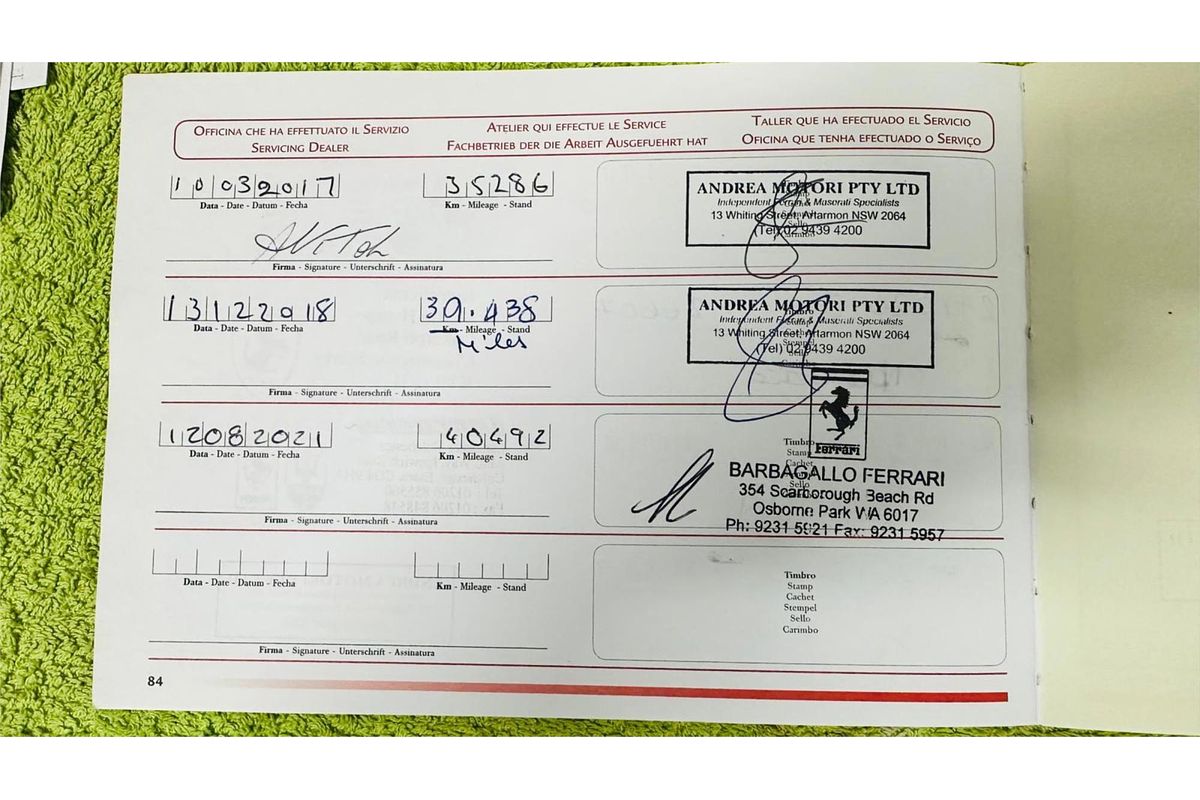 OFFICINA CHE HA EFFETTUATO IL SERVIZIO
SERVICING DEALER
ATELIER QUI EFFECTUE LE SERVICE
FACHBETRIEB DER DIE ARBEIT AUSGEFUEHRT HAT
TALLER QUE HA EFECTUADO EL SERVICIO
OFICINA QUE TENHA EFECTUADO O SERVIÇO
10032017
Data - Date - Datum - Fecha
35286
Km - Mileage - Stand
Firma - Signature - Unterschrift - Assinatura
ANDREA MOTORI PTY LTD
Independent Ferrari & Maserati Specialists
13 Whiting Street, Artarmon NSW 2064
(Tel) 02 9439 4200
Sello
Carimbo
13122018
Data - Date - Datum - Fecha
39.438
Km - Mileage - Stand
Miles
Firma - Signature - Unterschrift - Assinatura
ANDREA MOTORI PTY LTD
Timbro
Independent Ferrari & Maserati Specialists
Stamp
Cachet
13 Whiting Street, Artarmon NSW 2064
Stempel
(Tel) 02 9439 4200
Sello
Carimbo
12082021
Data - Date - Datum - Fecha
40492
Km - Mileage - Stand
Firma - Signature - Unterschrift - Assinatura
Ferrari
Timbro
Stamp
Cachet
BARBAGALLO FERRARI
354 Scarborough Beach Rd
Osborne Park WA 6017
Ph: 9231 5921 Fax: 9231 5957
Sello
Data - Date - Datum - Fecha
Km - Mileage - Stand
Firma - Signature - Unterschrift - Assinatura
Timbro
Stamp
Cachet
Stempel
Sello
Carimbo
84